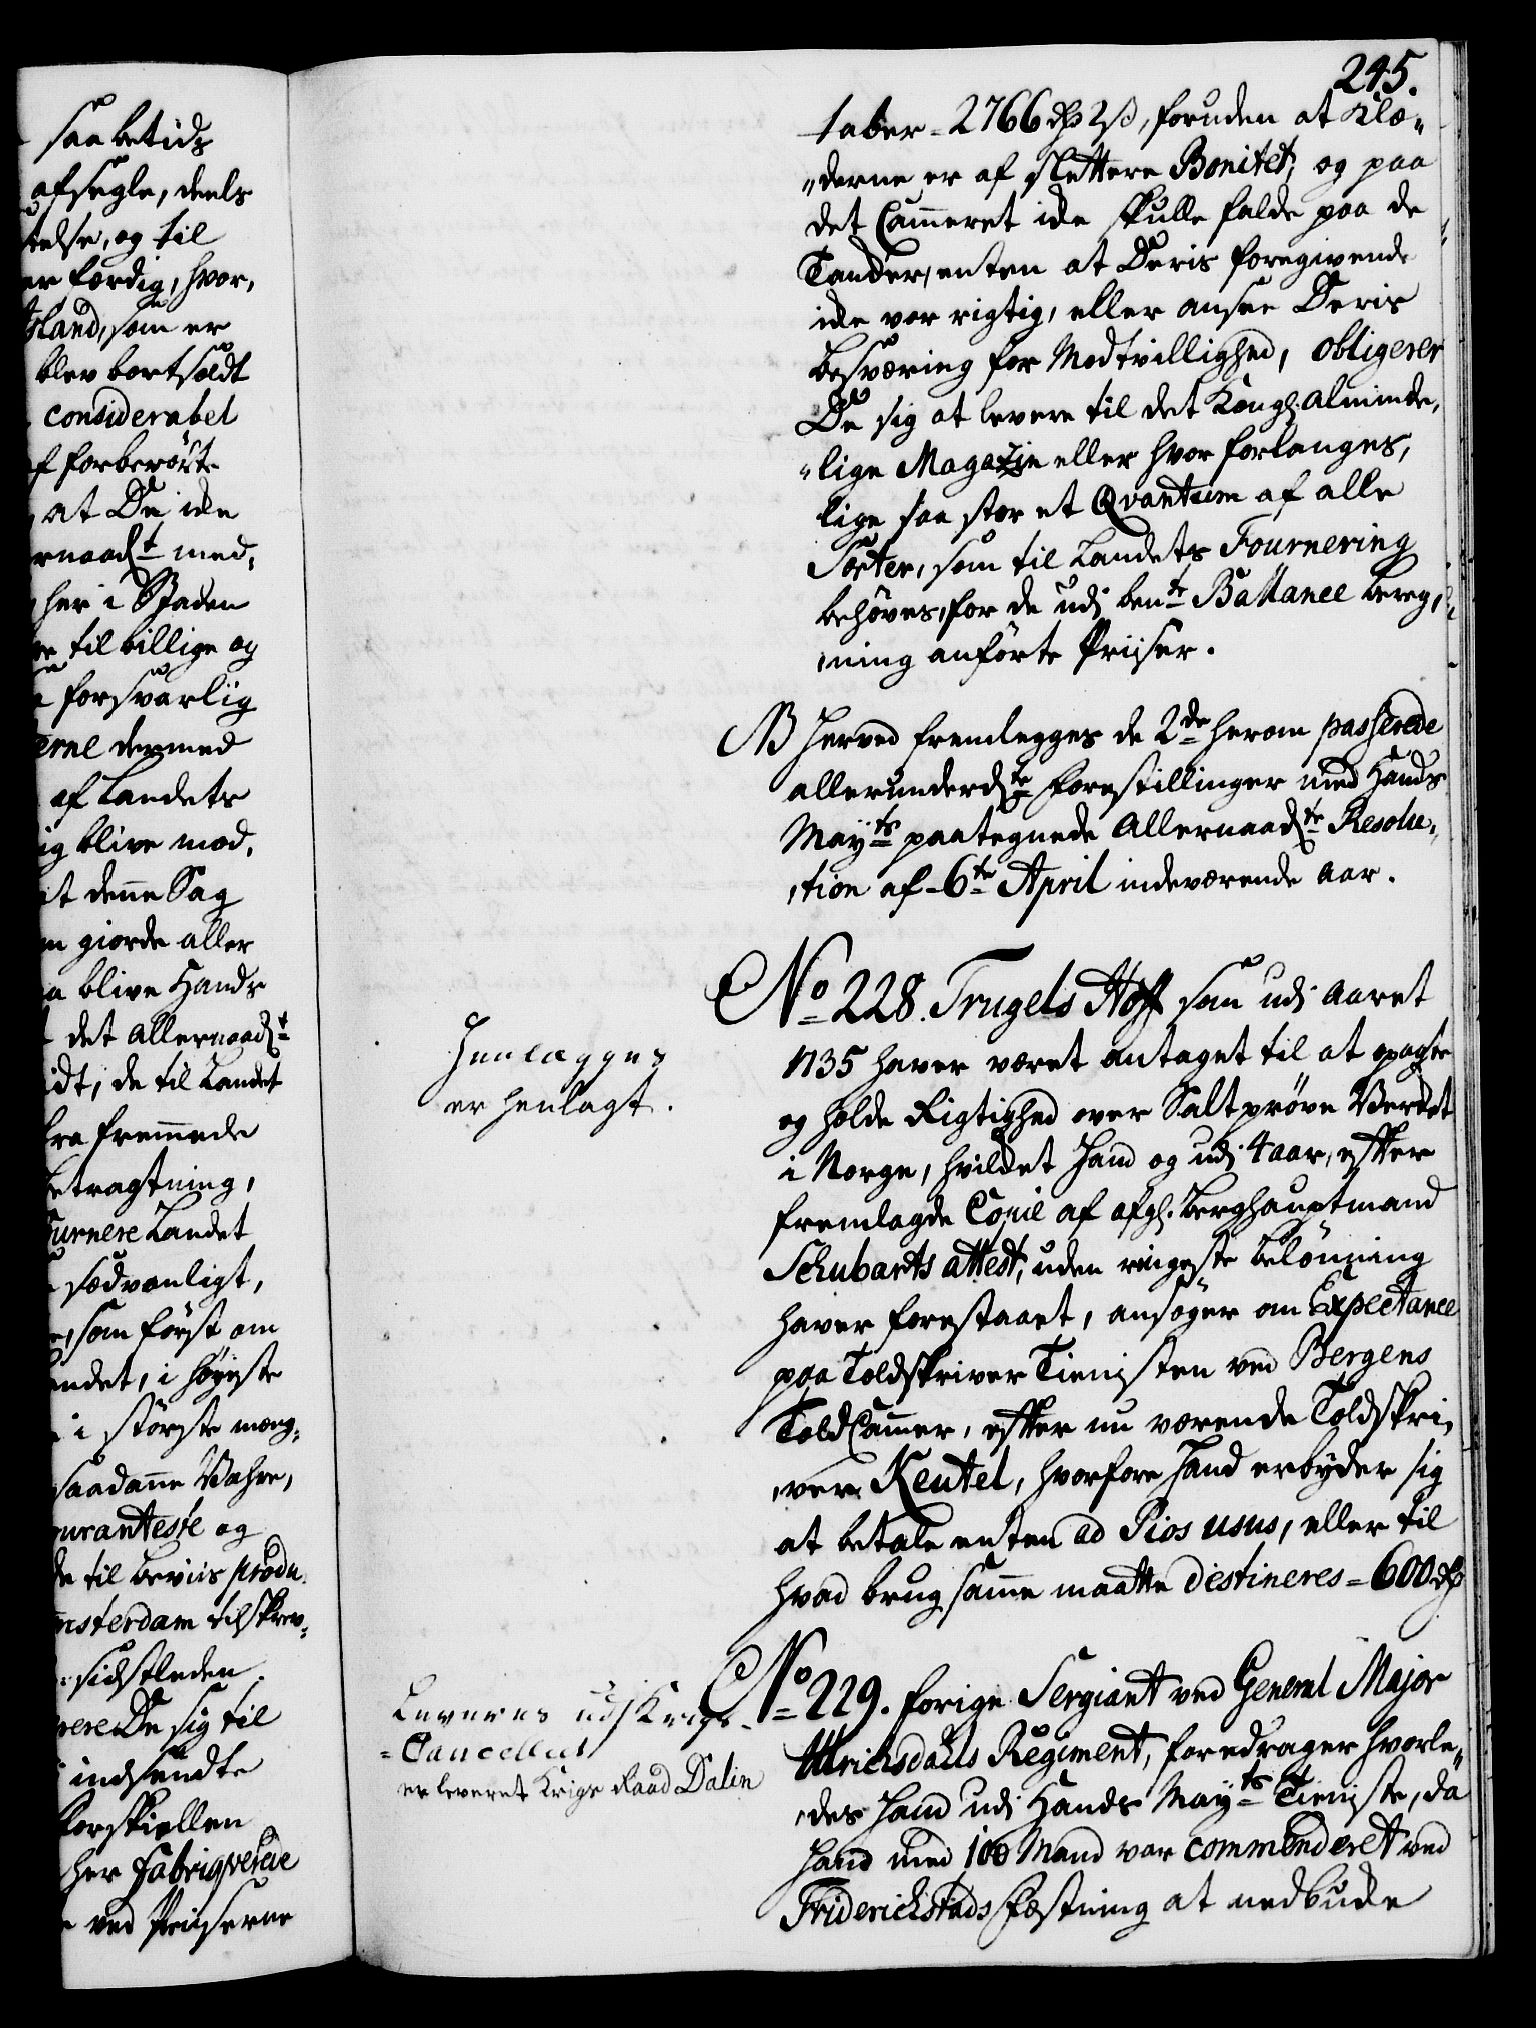 saa betids
afseyle, deels
telse, og til
er færdig, hvor,
Island, som er
blev bortsoldt
considerabel
forberörte
at De icke
her i Staden
til billige og
forsvarlig
erne dermed
af Landets
blive mod,
at denne Sag
giorde aller
blive Hands
det allernaadst
idt, de til Landet
fra fremmede
betragtning,
fournere Landet
sædvanligt,
som först om
Landet, i höyeste
i störste mæng-
saadanne Vahre,
og
til beviis produ-
Amsterdam tilskrev-
sidstleden.
De sig til
indsendte
forskiellen
her Fabriqverede
ved Priiserne
245.
taber = 2766 rdr 2 ß, foruden at Klæ-
-derne er af slettere Bonitet, og paa
det Cammeret icke skulle falde paa de
Tancker, enten at Deris foregivende
icke var rigtig, eller ansee Deris
besværing for Modtvillighed, obligerer
De sig at levere til det Kongl. alminde-
-lige Magazin eller hvor forlanges,
lige saa stor et Qvantum af alle
Sorter, som til Landets Fournering
behöves, for de udi bente Ballance bereg-
-ning anförte Priiser.
NB Herved fremlegges de 2de herom passerede
allerunderdste forestillinger med Hands
Mayts paategnede Allernaadste Resolu-
-tion af 6te April indeværende aar.
No 228. Trugels Hoff som udi aaret
1735 haver været antaget til at
og holde Rigtighed over Saltpröve Vercket
i Norge, hvilcket Hand og udi 4 aar, efter
fremlagde Copie af afgl. Berghauptmand
Schubarts attest, uden ringeste belönning
haver forestaaet, ansöger om Expectance
paa Toldskriver Tienisten ved Bergens
Told Cammer, efter nu værende Toldskri-
-ver Keutel, hvorfore Hand erbyder sig
at betale enten ad Pios usus, eller til
hvad brug samme maatte destineres = 600 rdr
Henlægges
er henlagt.
No 229. forige Sergiant ved General Major
Ulrichsdahls Regiment, foredrager hvorle-
-des Hand udi Hands Mayts Tieniste, da
Hand med 100 Mand var commenderet ved
Friderichstads Fæstning at nedbude
Leveres udj Krigs-
=Cancelliet
er leveret Krigs Raad Dalin